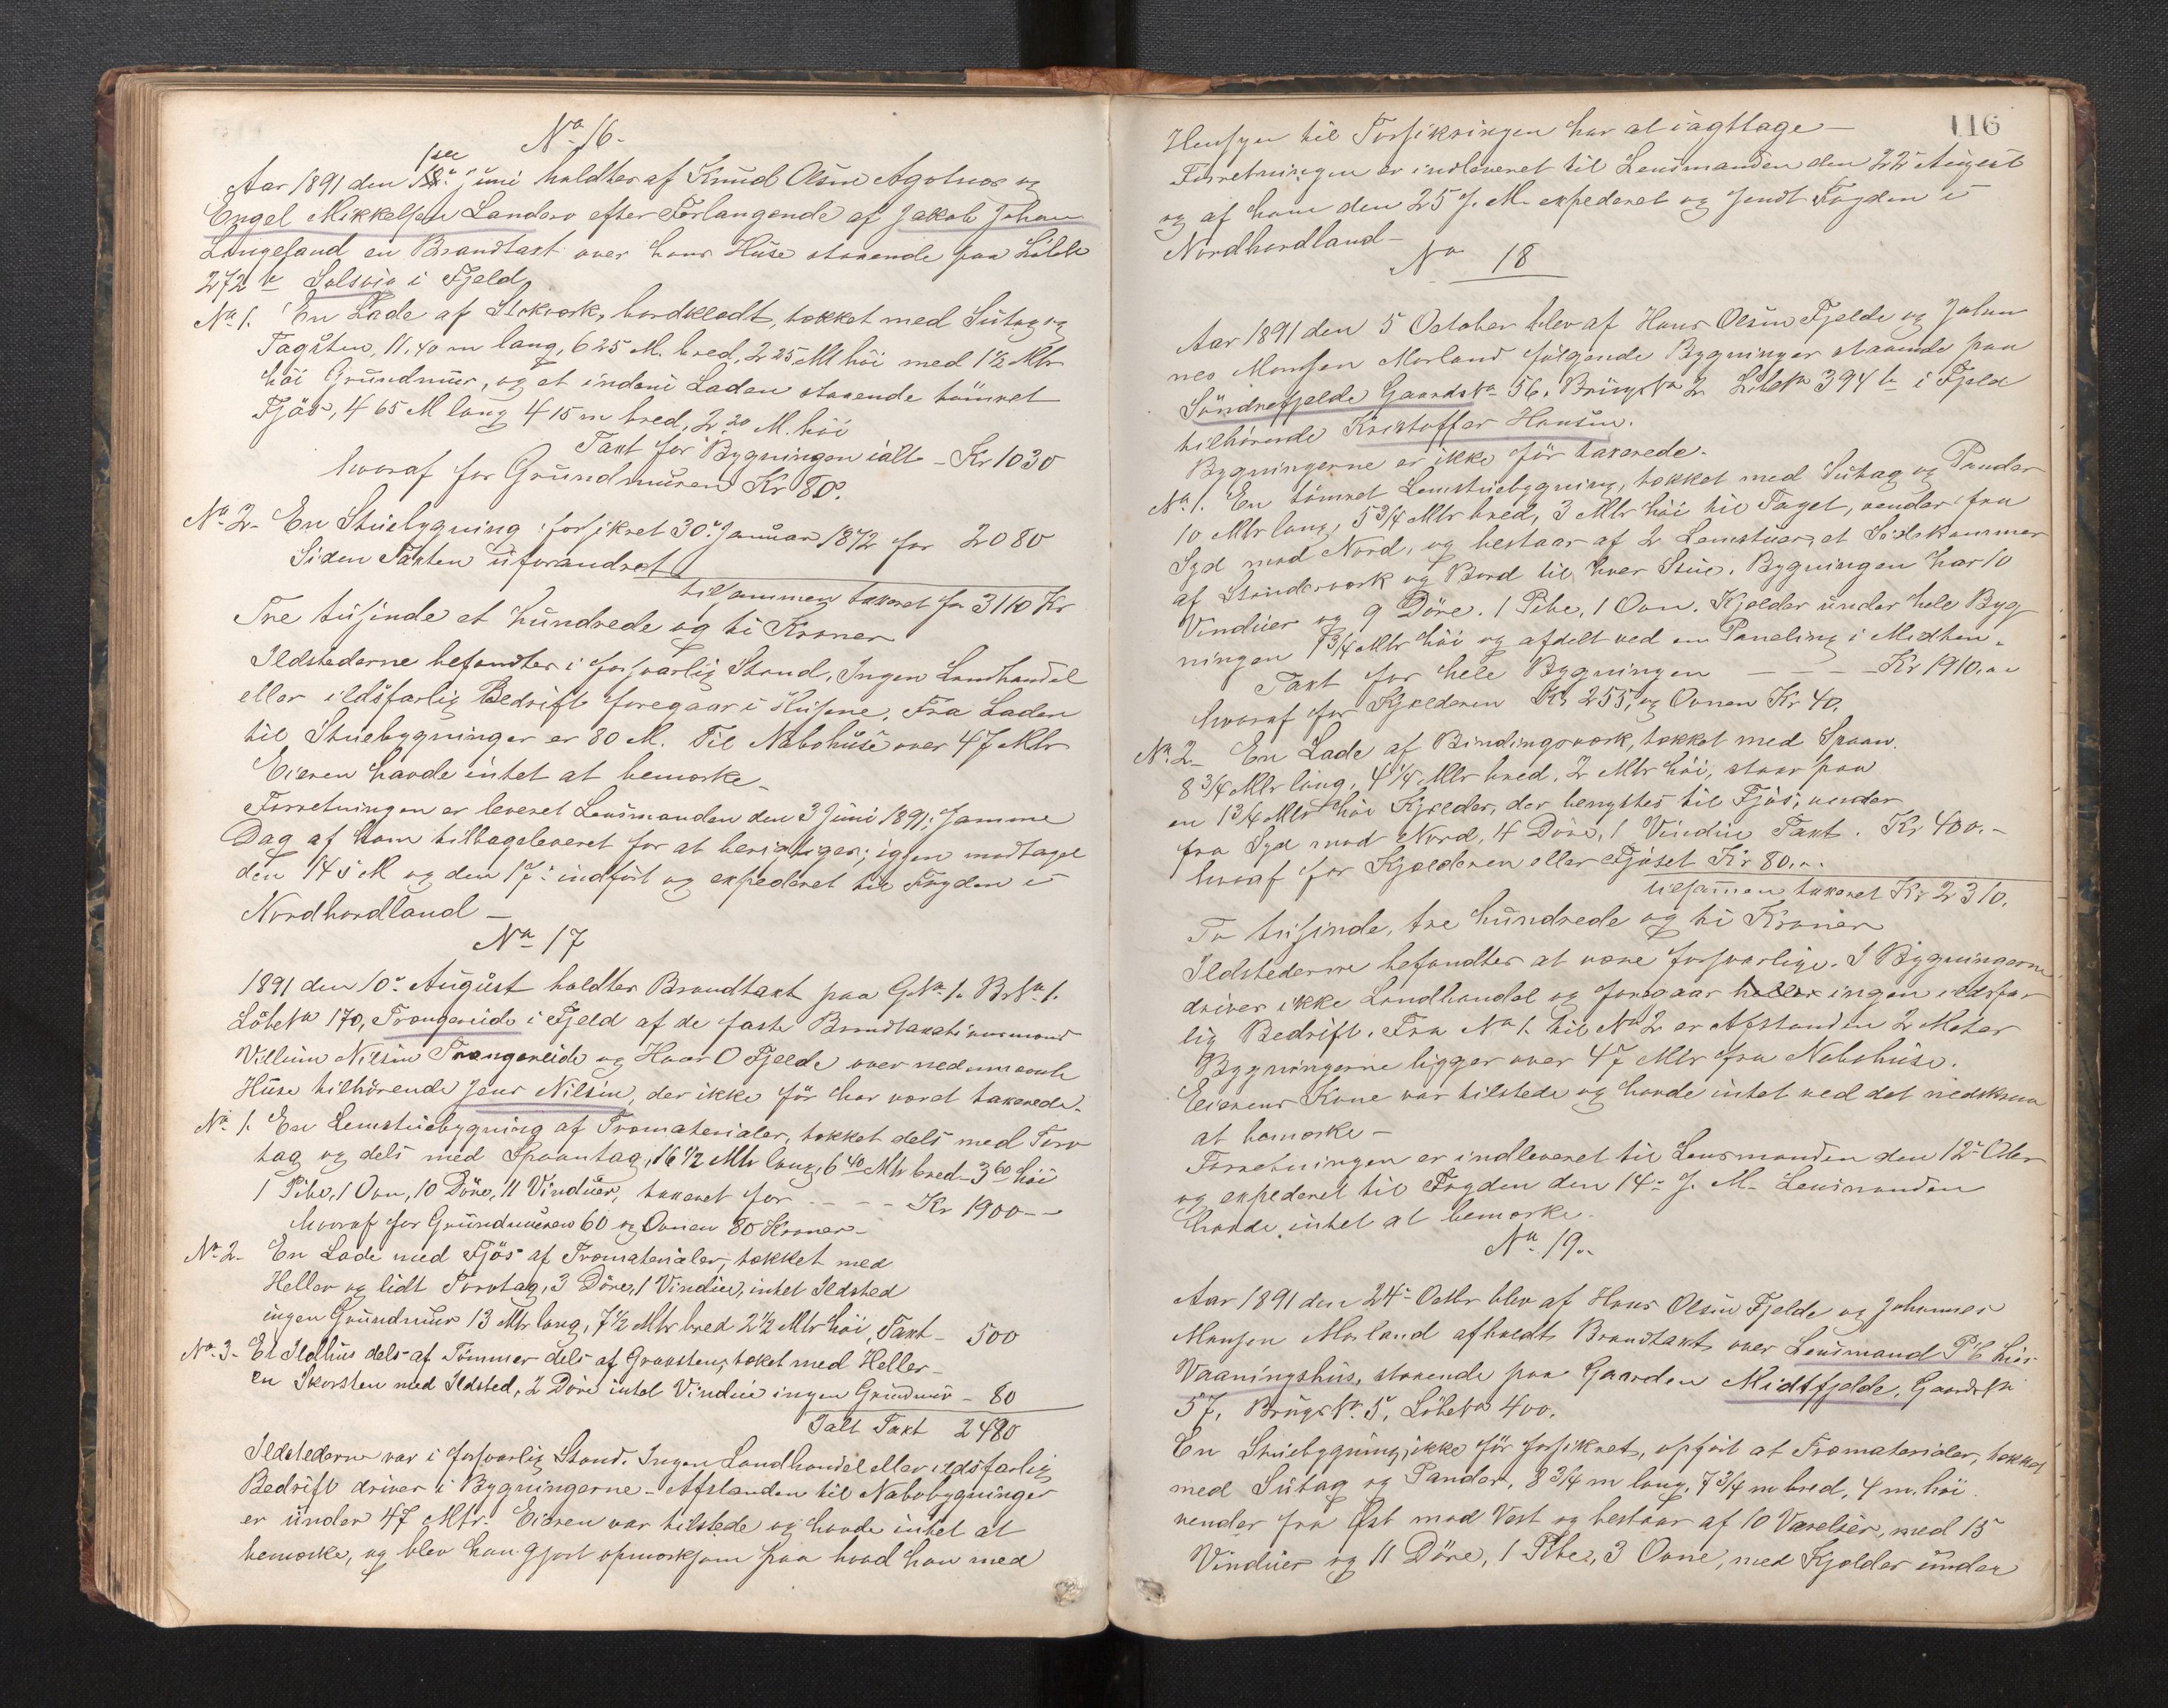 No 16.
Aar 1891 den 1ste Juni holdtes af Knud Olsen Agotnes og
Engel Mikkelsen Landero efter Forlangende af Jakob Johan
Langesand en Brandtaxt over hans Huse staaende paa Löbk
272 b Solsvig i Fjeld
No 1. En Lade af Stokværk, bordklædt, tækket med Sutag og
Tagsten, 11,40 m lang, 6 25 M. bred, 2 25 M höi med 1 1/2 Mtr
höi Grundmur, og et indeni Laden staaende tömret
Fjös, 4 65 M lang 4 15 m bred, 2 20 M. höi
Taxt for Bygningen ialt - Kr 1030
hvoraf for Grundmuren Kr 80.
No 2 - En Stuebygning forsikret 30 Januar 1872 for 2080
Siden Taxten uforandret
tilsammen taxeret for 3110 Kr
Tre tusinde et hundrede og ti Kroner
Ildstederne befandtes i forsvarlig Stand, Ingen Landhandel
eller ildsfarlig Bedrift foregaar i Husene. Fra Laden
til Stuebygninger er 80 M. Til Nabohuse over 47 Mtr
Eieren havde intet at bemærke -
Forretningen er leveret Lensmanden den 3 Juni 1891, samme
Dag af ham tilbageleveret for at berigtiges; igjen modtaget
den 14 s M og den 17 indfört og expederet til Fogden i
Nordhordland -
No 17
1891 den 10 August holdtes Brandtaxt paa G.No 1. Br No 1.
Löbe No 170, Trengereide i Fjeld af de faste Brandtaxationsmænd
Villum Nilsen Trengereide og Hans O Fjelde over nedennævnte
Huse tilhörende Jens Nilsen, der ikke för har været taxerede.
No 1. En Lemstuebygning af Træmaterialer, tækket dels med Torv
tag og dels med Spaantag, 16 1/2 Mtr lang, 6 40 Mtr bred - 3 60 höi
1 Pibe, 1 Ovn, 10 Döre, 11 Vinduer, taxeret for - - - Kr 1900 - -
hvoraf for Grundmuren 60 og Ovnen 80 Kroner -
No 2 - En Lade med Fjös af Træmaterialer, tækket med
Heller og lidt Torvtag, 3 Döre, 1 Vindue, intet Ildsted
ingen Grundmur 13 Mtr lang, 7 1/2 Mtr bred 2 1/2 Mtr höi, Taxt - 500
No 3 - Et Ildhus dels af Tömmer dels af Graasten, tækket med Heller -
en Skorsten med Ildsted, 2 Döre intet Vindue ingen Grundmur - 80
Ialt Taxt 2480
Ildstederne var i forsvarlig Stand. Ingen Landhandel eller ildsfarlig
Bedrift driver i Bygningerne - Afstanden til Nabobygninger
er under 47 Mtr. Eieren var tilstede og havde intet at
bemærke, og blev han gjort opmærksom paa hvad han med
116
Hensyn til Forsikringen har at iagttage -
Forretningen er indleveret til Lensmanden den 22 August
og af ham den 25 s. M. expederet og sendt Fogden i
Nordhordland -
No 18
Aar 1891 den 5 October blev af Hans Olsen Fjelde og Johan
nes Monsen Morland fölgende Bygninger staaende paa
Söndrefjelde Gaards No 56. Brugs No 2 Löbe No 394 b i Fjeld
tilhörende Kristoffer Hansen.
Bygningerne er ikke för taxerede.
No 1. En tömret Lemstuebygning, tækket med Sutag og Pander
10 Mtr lang, 5 3/4 Mtr bred, 3 Mtr höi til Taget, vender fra
Syd mod Nord, og bestaar af 2 Lemstuer, et Sidekammer
af Standerværk og Bord til hver Stue. Bygningen har 10
Vinduer og 9 Döre. 1 Pibe, 1 Ovn. Kjelder under hele Byg
ningen 1 3/4 Mtr höi og afdelt ved en Paneling i Midten.
Taxt for hele Bygningen - - - Kr 1910. - -
hvoraf for Kjelderen Kr 255, og Ovnen Kr 40.
No 2 - En Lade af Bindingsværk, tækket med Spaan.
8 3/4 Mtr lang, 4 1/4 Mtr bred. 2 Mtr höi, staar paa
en 1 3/4 Mtr höi Kjelder, der benyttes til Fjös, vender
fra Syd mod Nord, 4 Döre, 1 Vindue Taxt. Kr 400. -
hvoraf for Kjelderen eller Fjöset Kr 80. -
tilsammen taxeret Kr 2310.
To tusinde, tre hundrede og ti Kroner
Ildstederne befandtes at være forsvarlige. I Bygningerne
driver ikke Landhandel og foregaar heller ingen ildsfar
lig Bedrift. Fra No 1. til No 2 er Afstanden 2 Meter
Bygningerne ligger over 47 Mtr fra Nabohuse.
Eierens Kone var tilstede og havde intet ved det nedskrevne
at bemærke -
Forretningen er indleveret til Lensmanden den 12 Otbr
og expederet til Fogden den 14 s. M. Lensmanden
havde intet at bemærke.
No 19.
Aar 1891 den 24 Octbr blev af Hans Olsen Fjelde og Johannes
Monsen Morland afholdt Brandtaxt over Lensmand P C
Vaaningshus, staaende paa Gaarden Midtfjelde, Gaards No
57, Brugs No 5, Löbe No 400.
En Stuebygning, ikke för forsikret, opfört af Træmaterialer, tækket
med Sutag og Pander, 8 3/4 m lang, 7 3/4 m bred, 4 m. höi.
vender fra Öst mod Vest og bestaar af 10 Værelser, med 15
Vinduer og 11 Döre, 1 Pibe, 3 Ovne, med Kjelder under